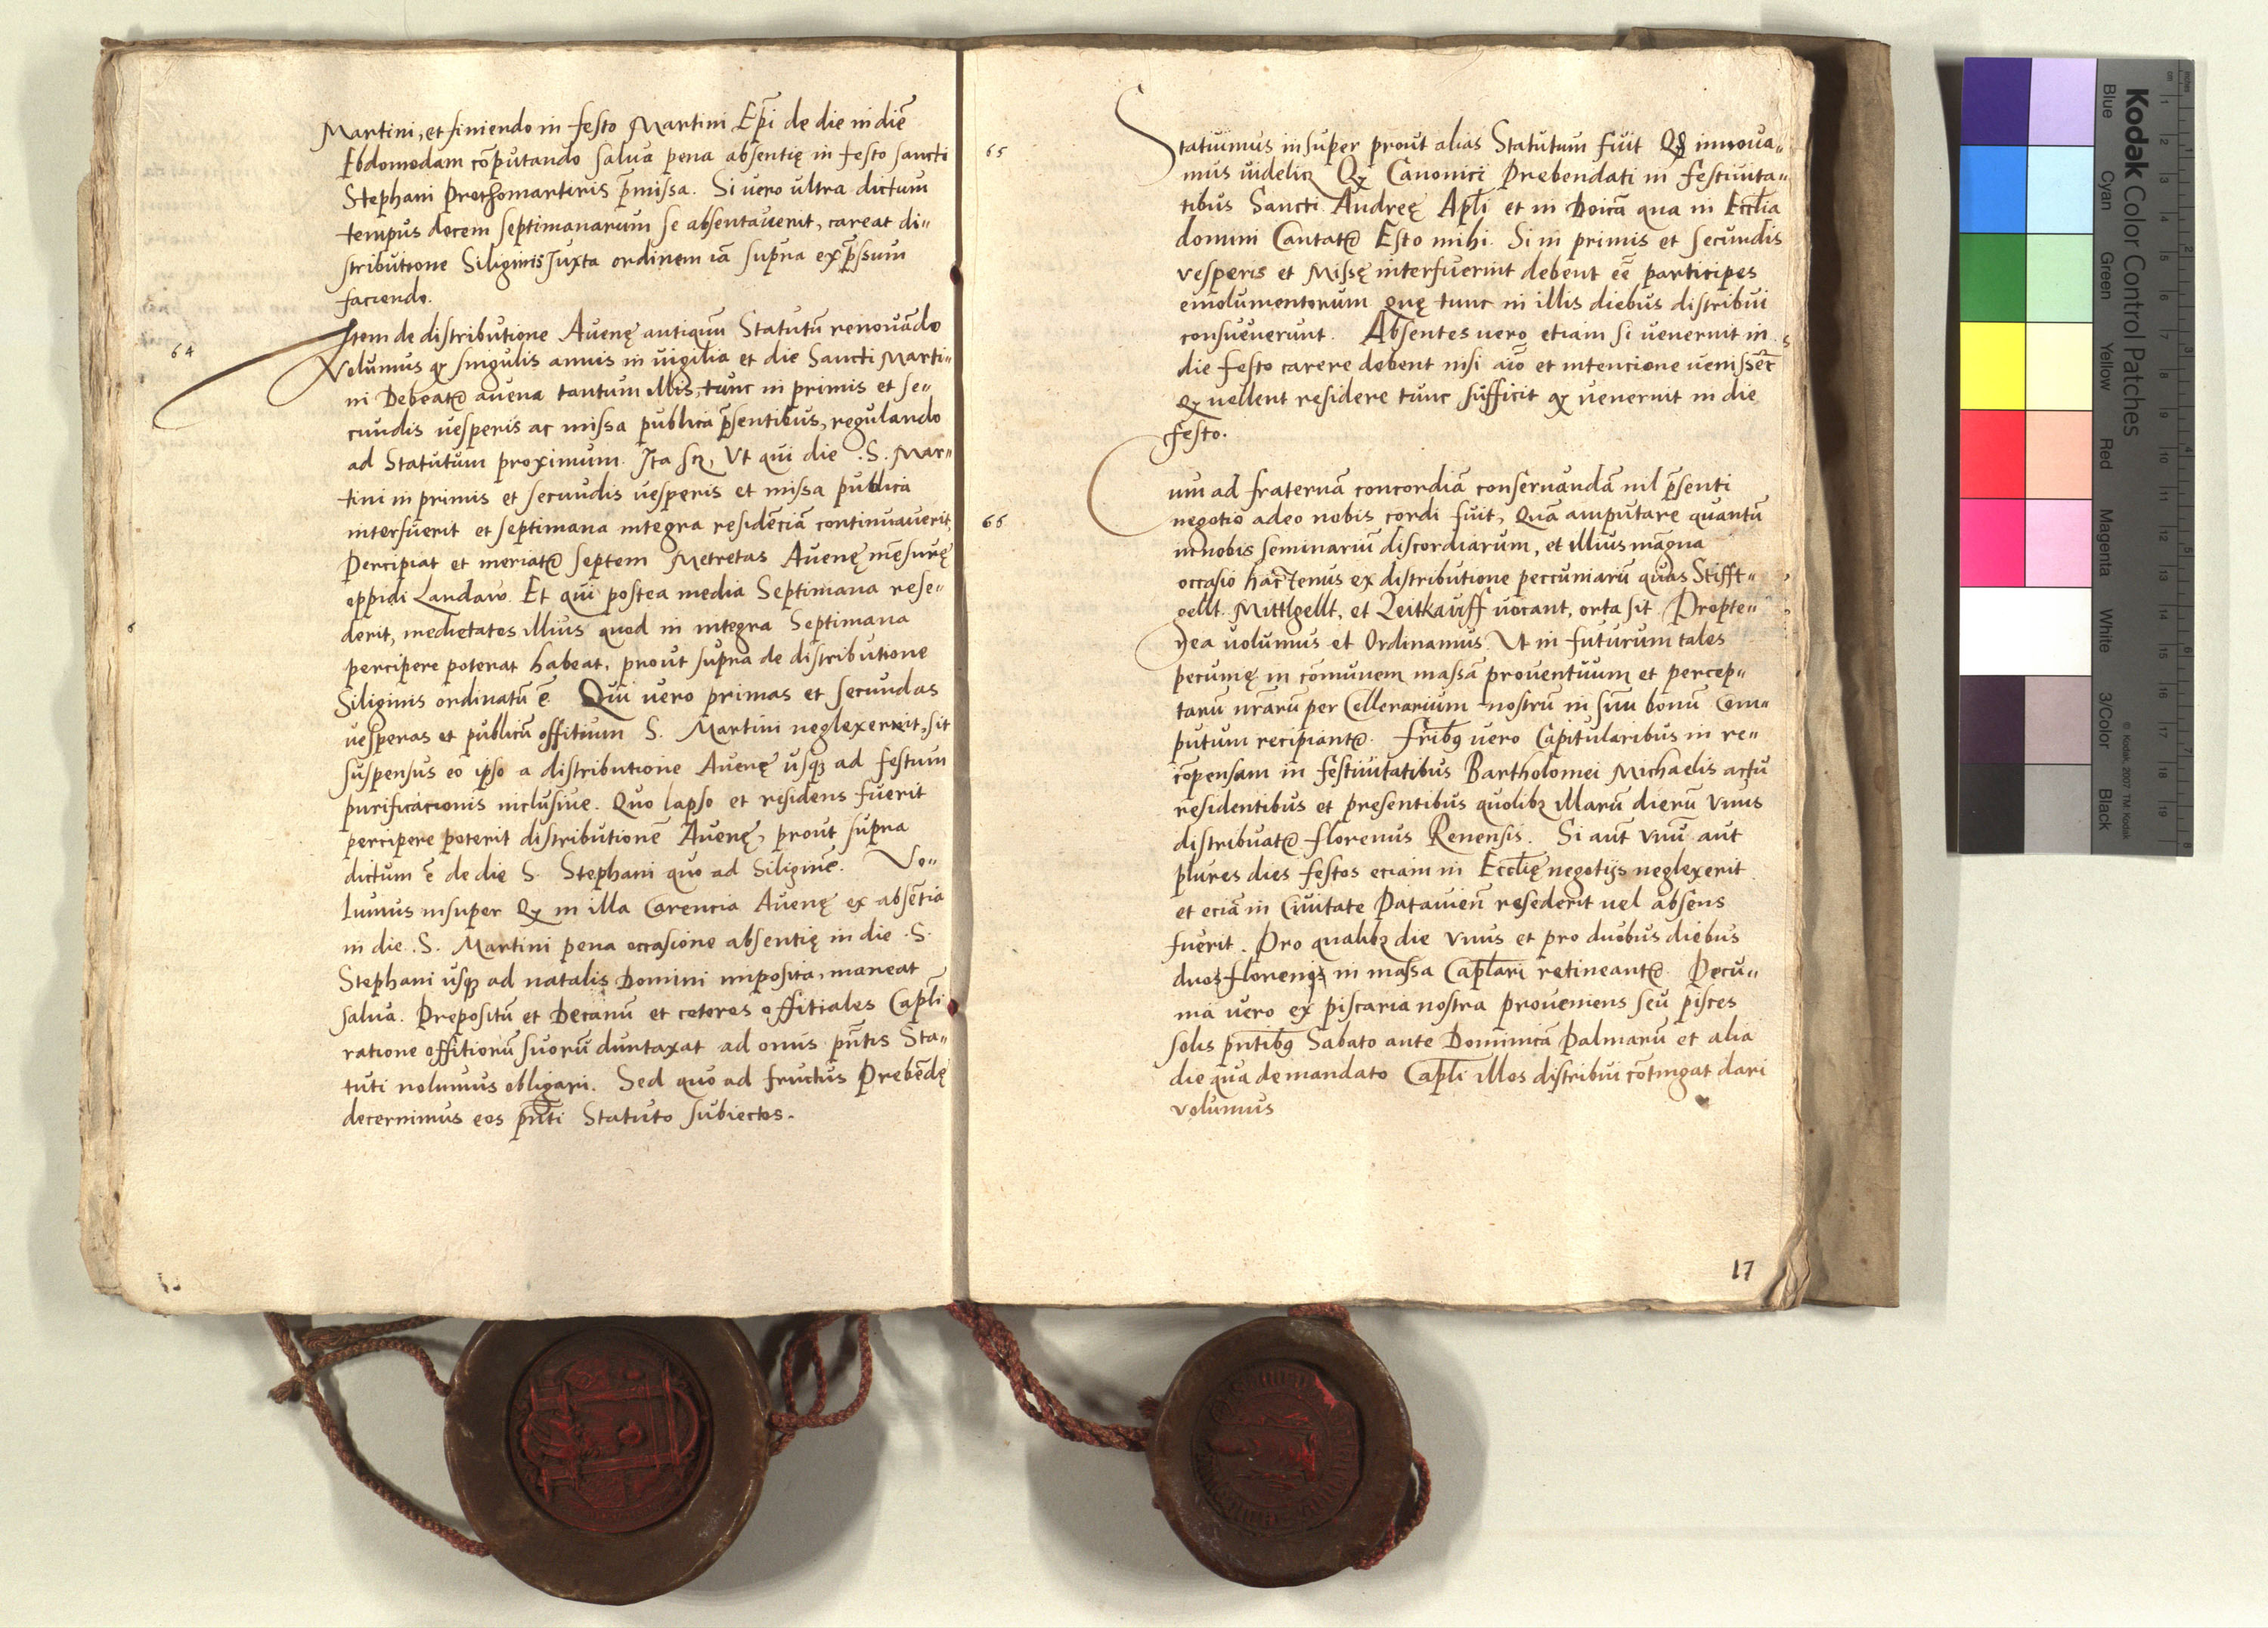 Martini, et finiendo in festo Martini Ep̄i de die in diē
Ebdomodam cōputando salua pena absentię in festo sancti
Stephani Prothomartiris p̄missa. Si uero ultra dictum
tempus decem septimanarum se absentauerit, careat di„
stributione Siliginis Juxta ordinem iā supra exp̄ssum
faciendo.
64
Item de distributione Auenę antiquū Statutū renouādo
Volumus qꝫ singulis annis in uigilia et die Sancti Marti„
ni Debeatᷣ auena tantum illis, tunc in primis et se„
cundis uesperis ac missa publica p̄sentibus, regulando
ad Statutum proximum. Ita scꝫ, Vt qui die .S. Mar„
tini in primis et secundis uesperis et missa publica
interfuerit et septimana integra residēciā continuauerit,
Percipiat et meriatᷣ septem Metretas Auenę mēsurę
oppidi Landaw. Et qui postea media Septimana rese„
derit, medietates illius quod in integra Septimana
percipere poterat habeat, prout supra de distributione
Siliginis ordinatū ē. Qui uero primas et secundas
uesperas et publicū offitium S. Martini neglexerit, sit
suspensus eo ipso a distributione Auenę usqꝫ ad festum
purificacionis inclusiue. Quo lapso et residens fuerit
percipere poterit distributionē Auenę, prout supra
dictum ē de die S. Stephani quo ad Siliginē. Vo„
lumus insuper Qꝫ in illa Carencia Auenę ex absētia
in die .S. Martini pena occasione absentię in die .S.
Stephani usqꝫ ad natalis Domini imposita, maneat
salua. Prepositū et Decanū et ceteros offitiales Cap̄li
ratione offitiorū suorū duntaxat ad onus pn̄tis Sta„
tuti nolumus obligari. Sed quo ad fructus Prebēdę
decernimus eos pn̄ti Statuto subiectos.
65
Statuimus insuper prout alias Statutum fuit innoua„
mus uidelicꝫ Qꝫ Canonici Prebendati in festiuita„
tibus Sancti Andreę Apl̄i et in Doīca qua in Eccl̄ia
domini Cantatᷣ Esto mihi. Si in primis et secundis
vesperis et Missę interfuerint debent eē participes
emolumentorum quę tunc in illis diebus distribui
consueuerunt. Absentes uero etiam si uenerint in
die festo carere debent nisi aīo et intencione uenissēt
qꝫ uellent residere tunc sufficit qꝫ uenerint in die
festo.
66
Cum ad fraternā concordiā conseruandā nil p̄senti
negotio adeo nobis cordi fuit, Quā amputare quantū
in nobis seminariū discordiarum, et illius magna
occasio hactenus ex distributione peccuniarū quas Stifft„
gellt. Mittlgellt, et Leitkauff uocant, orta sit. Propte„
rea uolumus et Ordinamus. Vt in futurum tales
pecunię in cōmunem massā prouentuum et percep„
tarū nr̄arū per Cellerarium nostrū in suū bonū Com„
putum recipiantᷣ. Frībꝯ uero Capitularibus in re„
cōpensam in festiuitatibus Bartholomei Michaelis actu
residentibus et presentibus quolibꝫ illarū dierū vnus
distribuatᷣ florenus Renensis. Si aūt vnū aut
plures dies festos eciam in Eccl̄ię negotijs neglexerit
et eciā in Ciuitate Patauien̄ resederit uel absens
fuerit. Pro qualibꝫ die vnus et pro duobus diebus
duos florenos in massa Cap̄lari retineantᷣ. Pecu„
nia uero ex piscaria nostra proueniens seu pisces
solis pn̄tibꝯ Sabato ante Dominicā Palmarū et alia
die qua de mandato Cap̄li illos distribui cōtingat dari
volumus
17
Kodak Color Control Patches
Blue
Cyan
Green
Yellow
Red
Magenta
White
3/Color
Black
© Kodak, 2007 TM: Kodak